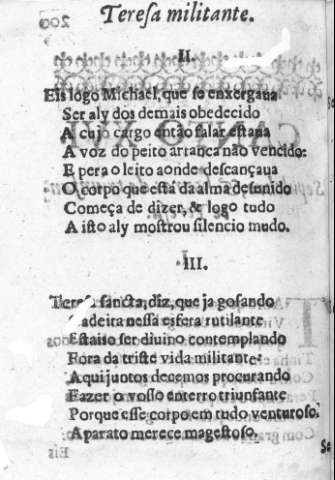 Teresa militante.
II.
Eis lògo Michael, que se enxergaua
Ser aly dos demais obedecido
A cujo cargo então falar estaua
A voz do peito arranca não vencido:
E pera o leito aonde descançaua
O corpo que está da alma desunido
Começa de dizer, & logo tudo
A isto aly mostrou silencio mudo.
III.
Teresa sancta, diz, que ja gosando
Cadeira nessa esfera rutilante
Estaiso ser diuino contemplando
Fora da triste vida militante:
Aqui juntos decemos procurando
Fazer o vosso enterro triunfante
Porque esse corpo em tudo venturoso.
Aparato merece magestoso.
Se